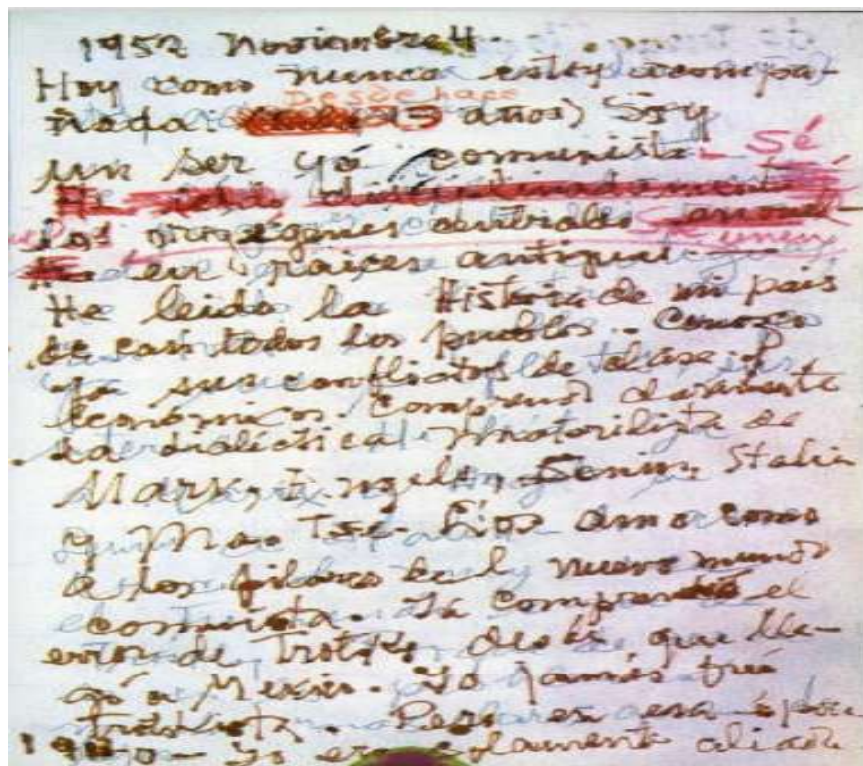 1952 Noviembre 4.
Hoy como nunca estoy acompa-
ñada. Desde hace años) Soy
un ser comunista. Sé
los orígenes centrales se unen
en raíces antiguas.
He leido la Historia de mi pais
de casi todos los pueblos. Conozco
ya sus conflictos de clase y
económicos. Comprendo claramente
la dialéctica materialista de
Marx, Engels, Lenin, Stalin
y Mao Tse. Los amo como
a los pilares del nuevo mundo
comunista. Ya comprendí el
error de Trotsky desde que lle-
gó a Mexico. Yo jamás fuí
trotskista. Pero en esa época
1940 - yo era solamente aliada